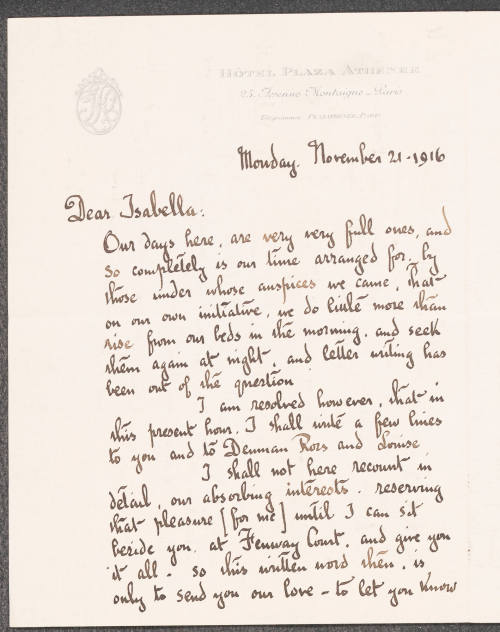 HÔTEL PLAZA ATHÉNÉE
25, Avenue Montaigne, Paris
Monday. November 21-1916
Dear Isabella:
Our days here, are very very full ones, and
so completely is our time arranged for, by
those under whose auspices we came, that
on our own initiative, we do little more than
rise from our beds in the morning, and seek
them again at night, and letter writing has
been out of the question
I am resolved however, that in
this present hour, I shall write a few lines
to you and to Denman Ross and Louise
I shall not here recount in
detail, our absorbing interests. reserving
that pleasure [for me] until I can sit
beside you, at Fenway Court, and give you
it all - so this written word then, is
only to send you our love - to let you know